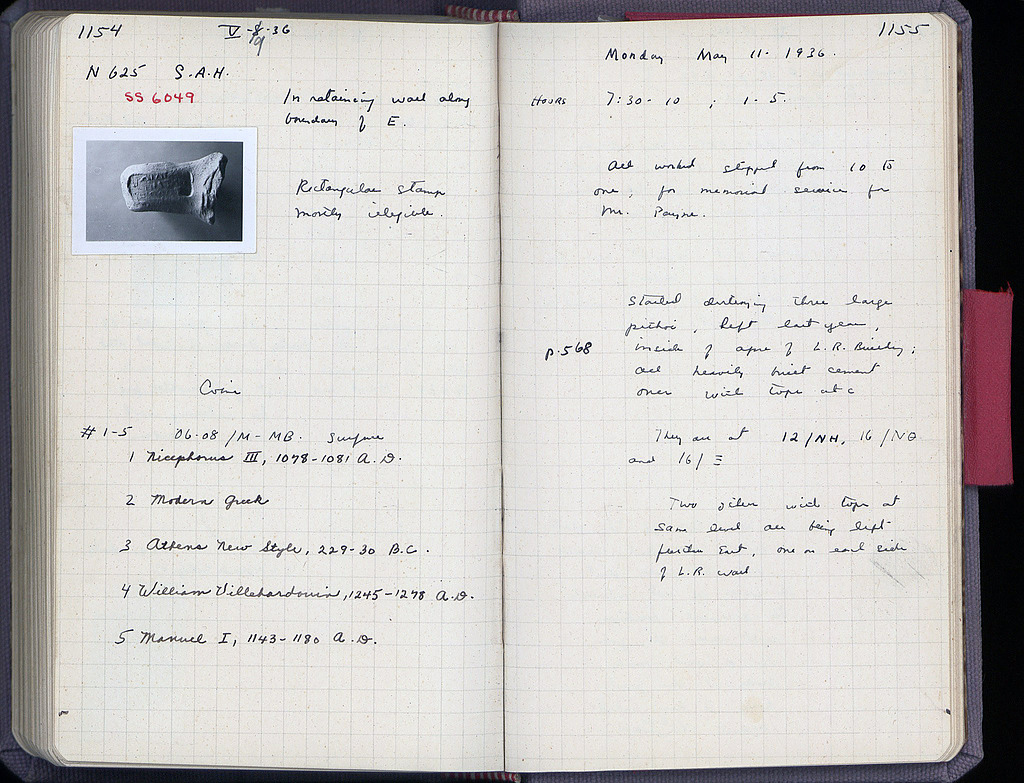 1154
V-8-36
9
N 625 S.A.H.
SS 6049
In retaining wall along
boundary of E.
Rectangular stamp
mostly illegible.
Coins
#1-5 06-08/M-MB. Surface
1 Nicephorus III, 1078-1081 A.D.
2 Modern Greek
3 Athens New Style, 229-30 B.C.
4 William Villehardouin, 1245-1278 A.D.
5 Manuel I, 1143-1180 A.D.
1155
Monday May 11. 1936.
HOURS 7:30-10 ; 1-5.
All worked stopped from 10 to
one, for memorial service for
Mr. Payne.
Started destroying three large
pithoi, left last year,
p.568 inside of apse of L.R. Building;
all heavily built cement
ones with tops at c
They are at 12/NH, 16/NΘ
and 16/Ξ
Two others with tops at
same level are being left
further East, one on each side
of L.R. wall